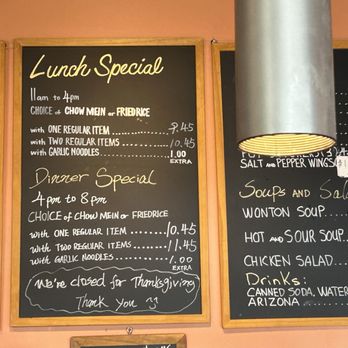 Lunch Special
11am to 4pm
CHOICE of CHOW MEIN or FRIEDRICE
with ONE REGULAR ITEM.............. 9.45
with TWO REGULAR ITEMS ........... 10.45
with GARLIC NOODLES................ 1.00
EXTRA
Dinner Special
4pm to 8pm
CHOICE of CHOW MEIN or FRIEDRICE
with ONE REGULAR ITEM............ 10.45
with TWO REGULAR ITEMS........... 11.45
with GARLIC NOODLES.............. 1.00
EXTRA
We're closed for Thanksgiving
Thank you
SALT AND PEPPER WINGS
Soups AND
WONTON SOUP....
HOT AND SOUR SOUP...
CHICKEN SALAD.....
Drinks:
CANNED SODA, WATER
ARIZONA.............